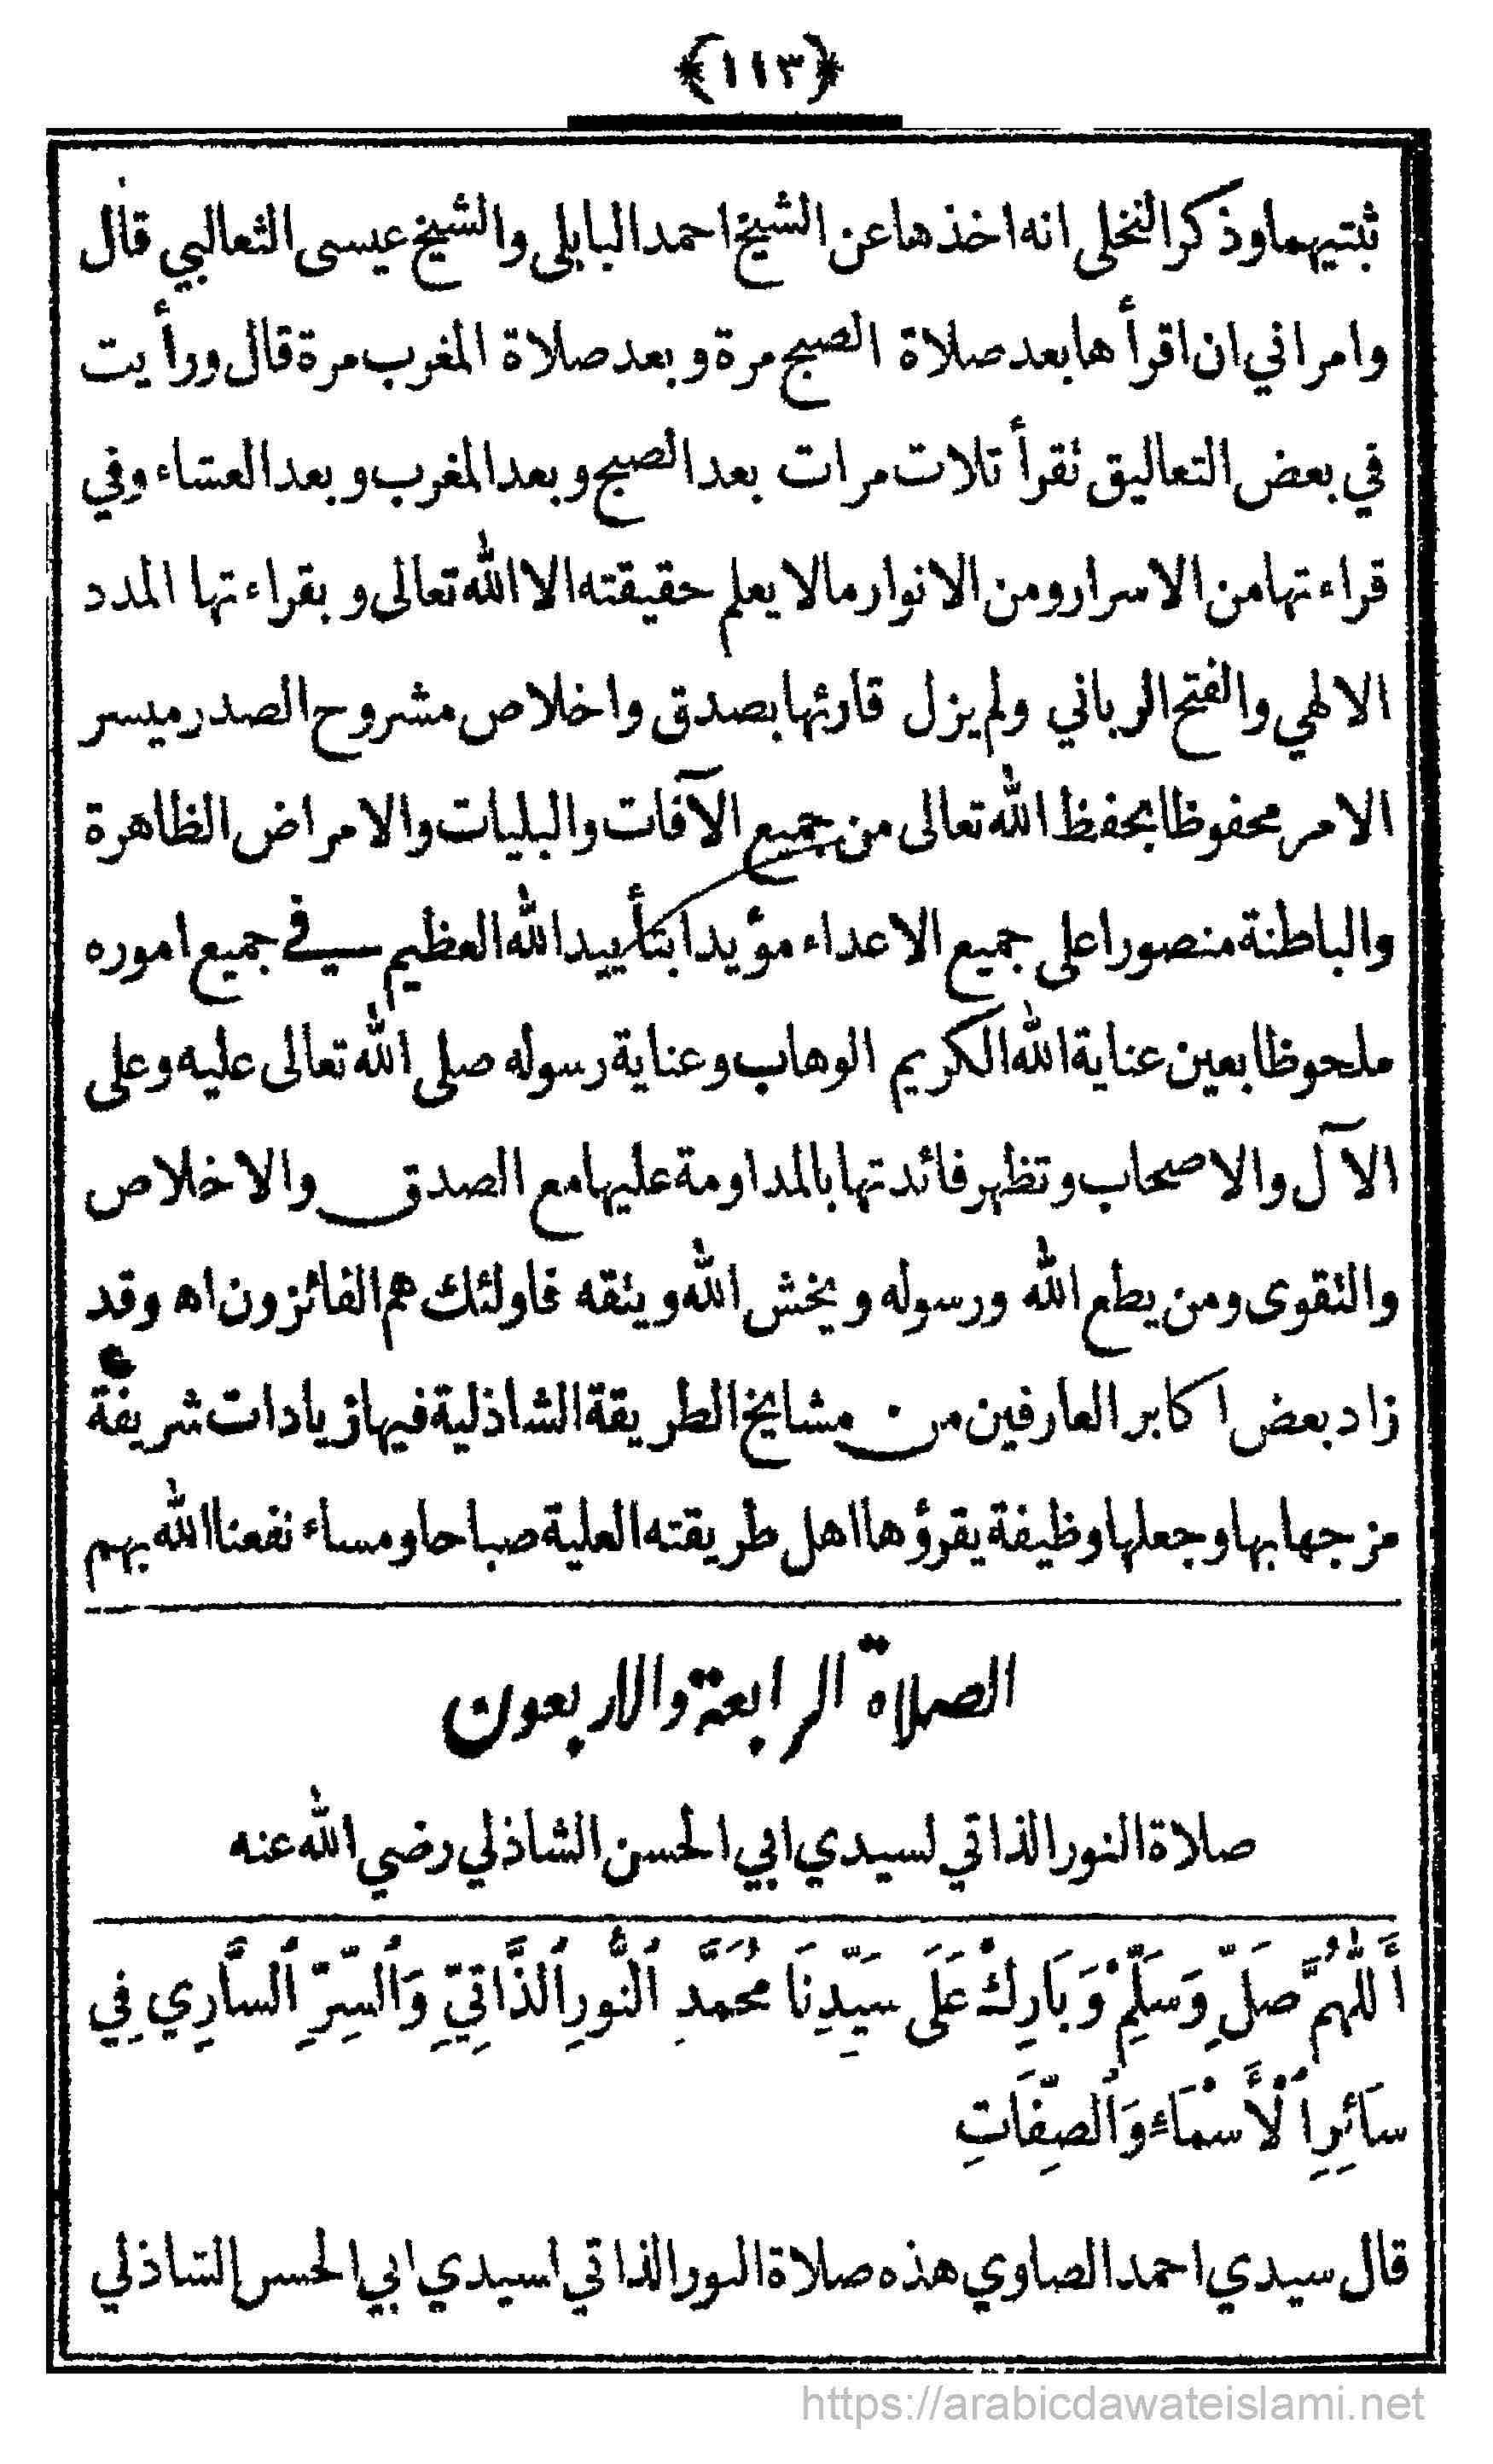 ﴿١١٣﴾
ثبتيهما وذكر النخلي انه اخذها عن الشيخ احمد البابلي والشيخ عيسى الثعالبي قال
وامراني ان اقرأها بعد صلاة الصبح مرة وبعد صلاة المغرب مرة قال ورأيت
في بعض التعاليق تقرأ ثلاث مرات بعد الصبح وبعد المغرب وبعد العشاء وفي
قراءتها من الاسرار ومن الانوار مالا يعلم حقيقته الا الله تعالى وبقراءتها المدد
الالهي والفتح الرباني ولم يزل قارئها بصدق واخلاص مشروح الصدر ميسر
الامر محفوظا بحفظ الله تعالى من جميع الآفات والبليات والامراض الظاهرة
والباطنة منصورا على جميع الاعداء مؤيدا بتأييد الله العظيم في جميع اموره
ملحوظا بعين عناية الله الكريم الوهاب وعناية رسوله صلى الله تعالى عليه وعلى
الآل والاصحاب وتظهر فائدتها بالمداومة عليها مع الصدق والاخلاص
والتقوى ومن يطع الله ورسوله ويخش الله ويتقه فاولئك هم الفائزون اه وقد
زاد بعض اكابر العارفين من مشايخ الطريقة الشاذلية فيها زيادات شريفة
مزجها بها وجعلها وظيفة يقرؤها اهل طريقته العلية صباحا ومساء نفعنا الله بهم
الصلاة الرابعة والاربعون
صلاة النور الذاتي لسيدي ابي الحسن الشاذلي رضي الله عنه
أَللّٰهُمَّ صَلِّ وَسَلِّمْ وَبَارِكْ عَلَى سَيِّدِنَا مُحَمَّدٍ ٱلنُّورِ ٱلذَّاتِيِّ وَٱلسِّرِّ ٱلسَّارِي فِي
سَائِرِ ٱلْأَسْمَاءِ وَٱلصِّفَاتِ
قال سيدي احمد الصاوي هذه صلاة النور الذاتي لسيدي ابي الحسن الشاذلي
https://arabicdawateislami.net